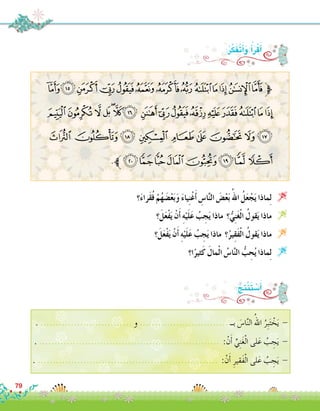 أَقْرَأُ وَأَتَفَكَّرُ
﴿ فَأَمَّا ٱلْإِنسَٰنُ إِذَا مَا ٱبْتَلَىٰهُ رَبُّهُۥ فَأَكْرَمَهُۥ وَنَعَّمَهُۥ فَيَقُولُ رَبِّىٓ أَكْرَمَنِ ١٥ وَأَمَّآ
إِذَا مَا ٱبْتَلَىٰهُ فَقَدَرَ عَلَيْهِ رِزْقَهُۥ فَيَقُولُ رَبِّىٓ أَهَٰنَنِ ١٦ كَلَّا ۖ بَل لَّا تُكْرِمُونَ ٱلْيَتِيمَ
١٧ وَلَا تَحَٰٓضُّونَ عَلَىٰ طَعَامِ ٱلْمِسْكِينِ ١٨ وَتَأْكُلُونَ ٱلتُّرَاثَ
أَكْلًا لَّمًّا ١٩ وَتُحِبُّونَ ٱلْمَالَ حُبًّا جَمًّا ٢٠ ﴾.
لِماذا يَجْعَلُ اللهُ بَعْضَ النّاسِ أَغْنِياءَ وَبَعْضَهُمْ فُقَراءَ؟
ماذا يَقولُ الْغَنِيُّ؟ ماذا يَجِبُ عَلَيْهِ أَنْ يَفْعَلَ؟
ماذا يَقولُ الْفَقيرُ؟ ماذا يَجِبُ عَلَيْهِ أَنْ يَفْعَلَ؟
لِماذا يُحِبُّ النّاسُ الْمالَ كَثيرًا؟
أَسْتَنْتِجُ
- يَخْتَبِرُ اللهُ النّاسَ بـِ .................... و .................... .
- يَجِبُ عَلى الْغَنِيِّ أَنْ: .................... .
- يَجِبُ عَلى الفَقيرِ أَنْ: .................... .
79